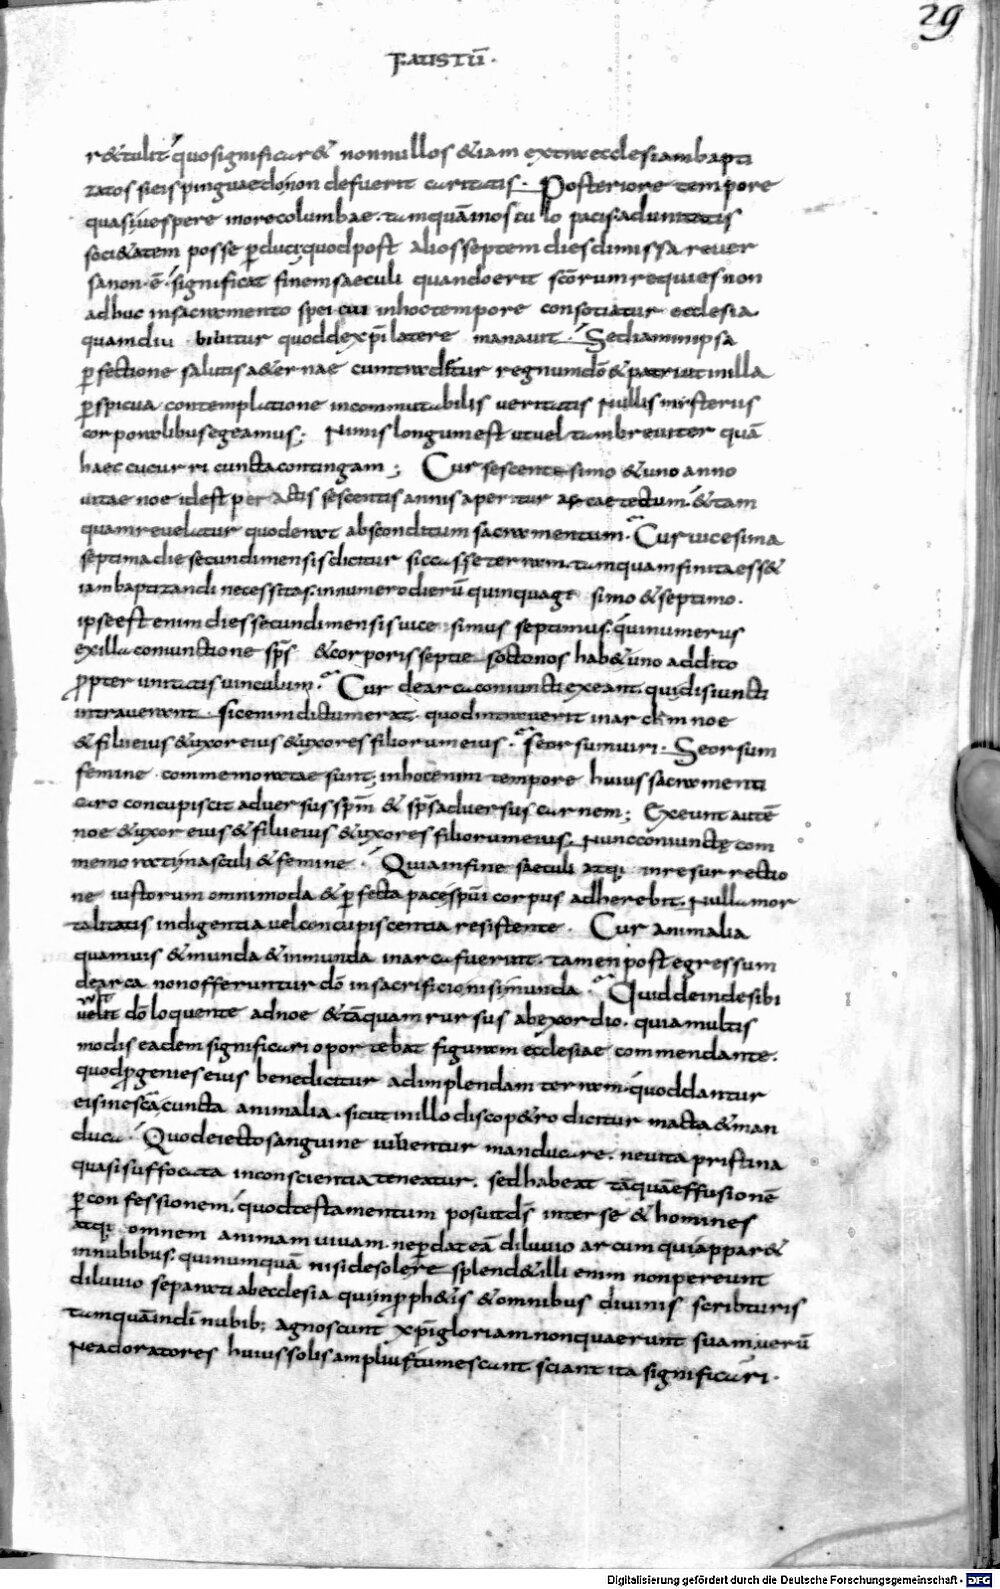 29
FAUSTŪ·
r&tulit quo significar& nonnullos &iam extra ecclesiam bapti
zatos si eis pinguaedo non defuerit caritatis. Posteriore tempore
quasi uespere in ore columbae. tamquā in osculo pacis ad unitatis
soci&atem posse ꝑduci quod post alios septem dies dimissa reuer
sa non ē. significat finem saeculi quando erit scōrum requies non
adhuc in sacramento spei cui in hoc tempore consotiatur ecclesia
quamdiu bibitur quod de xp̄i latere manauit. Sed iam in ipsa
ꝑfectione salutis a&ernae cum trad&ur regnum dō & patri ut in illa
ꝑspicua contemplatione incommutabilis ueritatis Nullis misteriis
corporalibus egeamus; Nimis longum est ut uel tam breuiter quā
haec cucurri cuncta contingam; Cur sescentesimo & uno anno
uitae noe id est peractis sescentis annis aperitur arcae tectum. & tam
quam reuelatur quod erat absconditum sacramentum. Cur uicesima
septima die secundi mensis dicitur siccasse terram. tamquam finita ess&
iam baptizandi necessitas. in numero dierū quinquagesimo & septimo.
ipse est enim dies secundi mensis uicesimus septimus. qui numerus
ex illa coniunctione sp̄s & corporis septies octonos hab& uno addito
ꝓpter unitatis uinculum. Cur de arca coniuncti exeant. qui disiuncti
intrauerunt. sic enim dictum erat. quod intrauerit in archm noe
& filii eius & uxor eius & uxores filiorum eius. Seorsum uiri. Seorsum
femine commemoratae sunt; in hoc enim tempore huius sacramenti
caro concupiscit aduersus sp̄m & sp̄s aduersus carnem; Exeunt autē
noe & uxor eius & filii eius & uxores filiorum eius. Nunc coniunctę com
memorati masculi & femine. Quia in fine saeculi atq; in resurrectio
ne iustorum omnimoda & ꝑfecta pace sp̄ui corpus adherebit. Nulla mor
talitatis indigentia uel concupiscentia resistente. Cur animalia
quamuis & munda & inmunda in arca fuerint. tamen post egressum
de arca non offeruntur dō in sacrificio nisi munda. Quid deinde sibi
uelit dō loquente ad noe & tāquam rursus ab exordio. quia multis
modis eadem significari oportebat figuram ecclesiae commendante.
quod ꝓgenies eius benedicitur ad implendam terram. quod dantur
eis in escā cuncta animalia. sicut in illo disco p&ro dicitur macta & man
duca. Quod eiecto sanguine iubentur manducare. ne uita pristina
quasi suffocata in conscientia teneatur. sed habeat tāquā effusionē
ꝑ confessionem. quod testamentum posuit ds̄ inter se & homines
atq; omnem animam uiuam. ne ꝑdat eā diluuio arcum qui appar&
in nubibus. qui numquā nisi de sole resplend& illi enim non pereunt
diluuio separati ab ecclesia qui in ꝓph&is & omnibus diuinis scribturis
tamquā in dī nubib; agnoscunt xp̄i gloriam non quaerunt suam. uerū
Ne adoratores huius solis amplius tumescant. sciant ita significari.
Digitalisierung gefördert durch die Deutsche Forschungsgemeinschaft - DFG